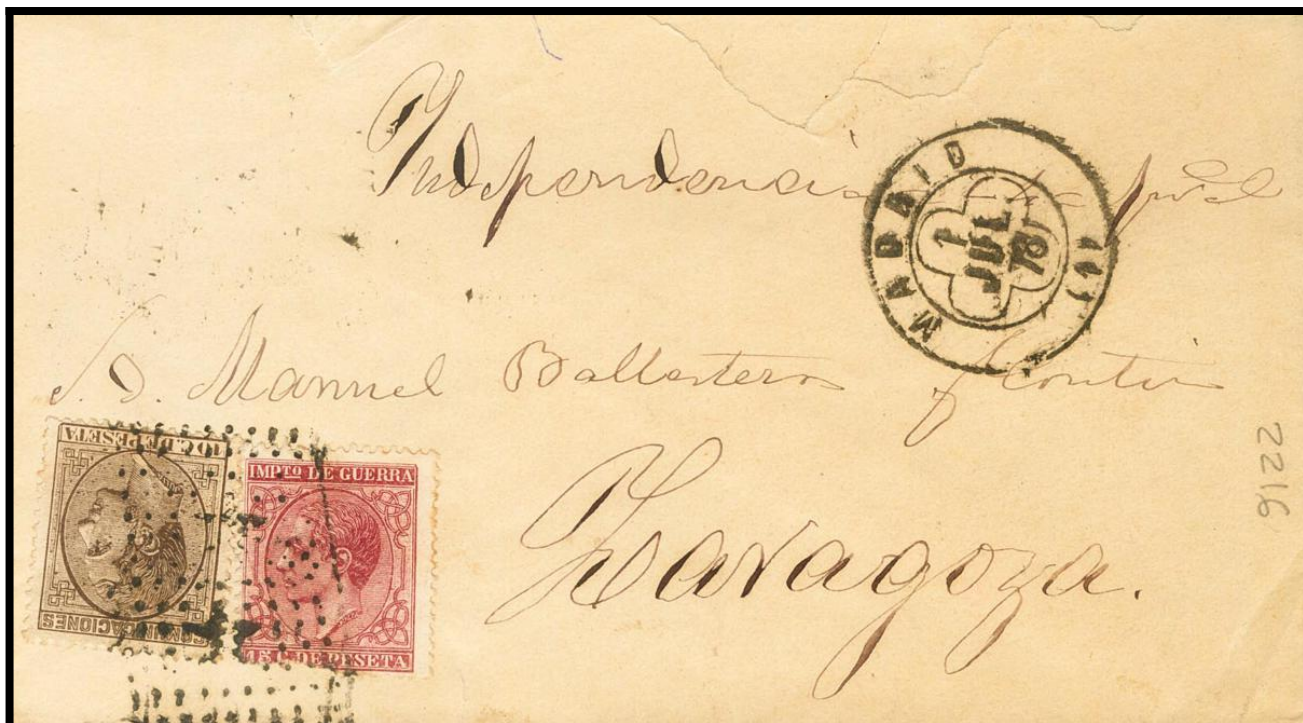 Independencia
MADRID
1
JUL
78
S. D. Manuel Ballesteros
Zaragoza.
10 C. DE PESETA
COMUNICACIONES
IMPTO DE GUERRA
15 C. DE PESETA
2216